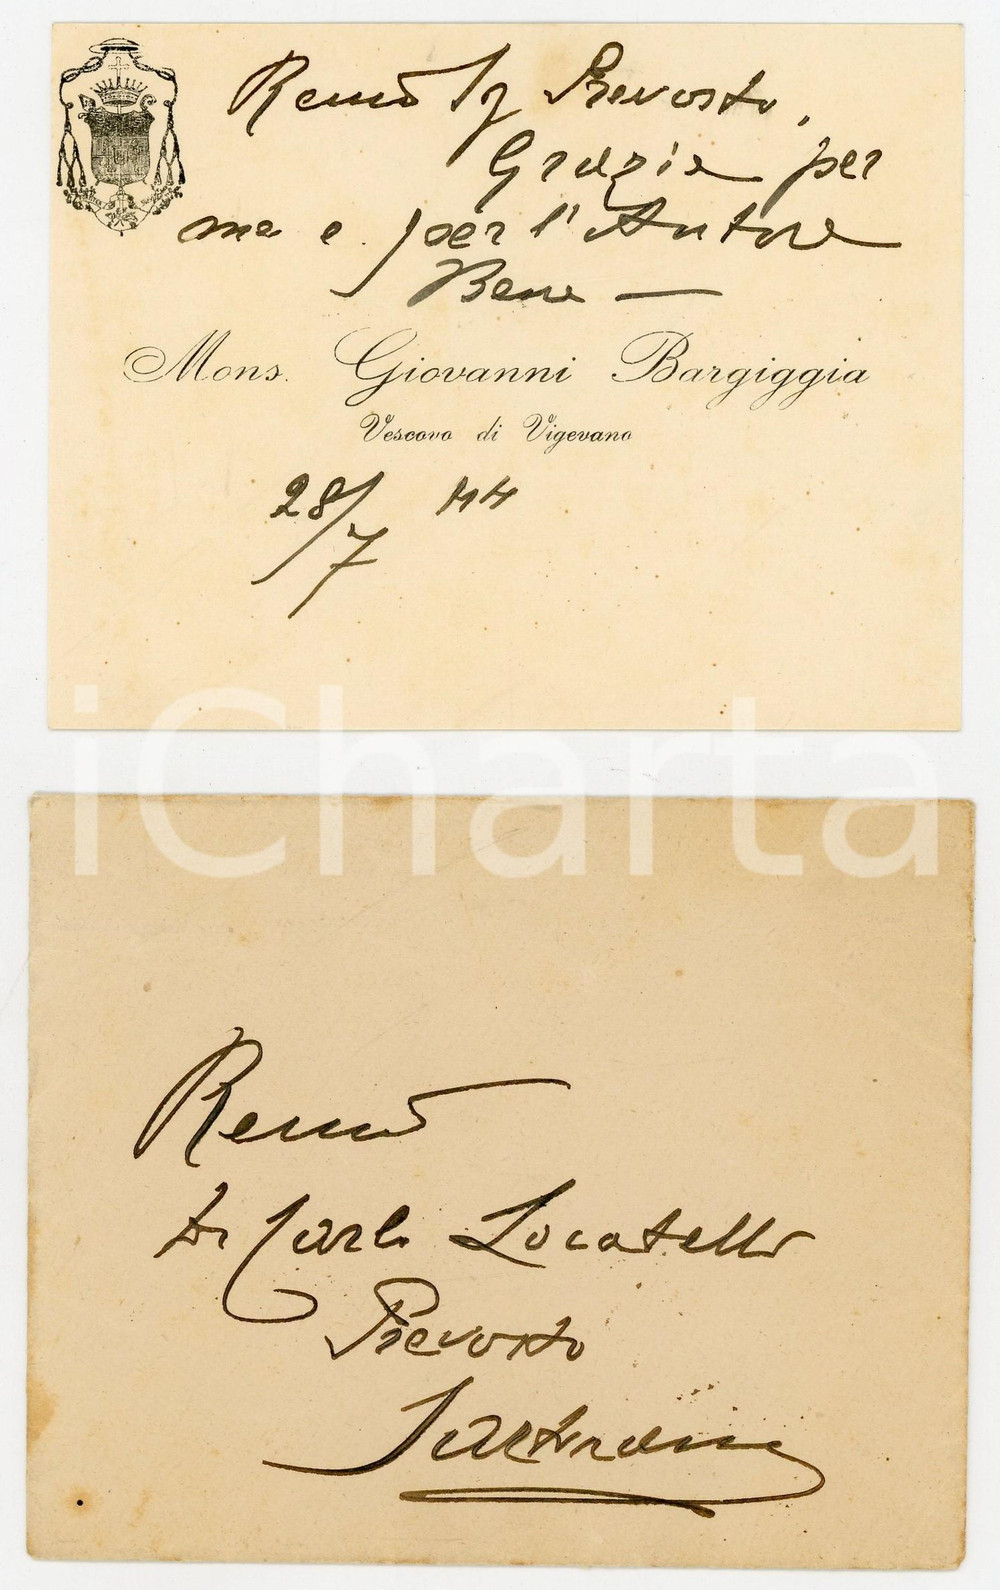 Remo Sg Prevosto,
Grazie per
me e per l'Autore
Bene —
Mons. Giovanni Bargiggia
Vescovo di Vigevano
28/7 44
iCharta
Remo
D. Carlo Locatelli
Prevosto
Sartirana